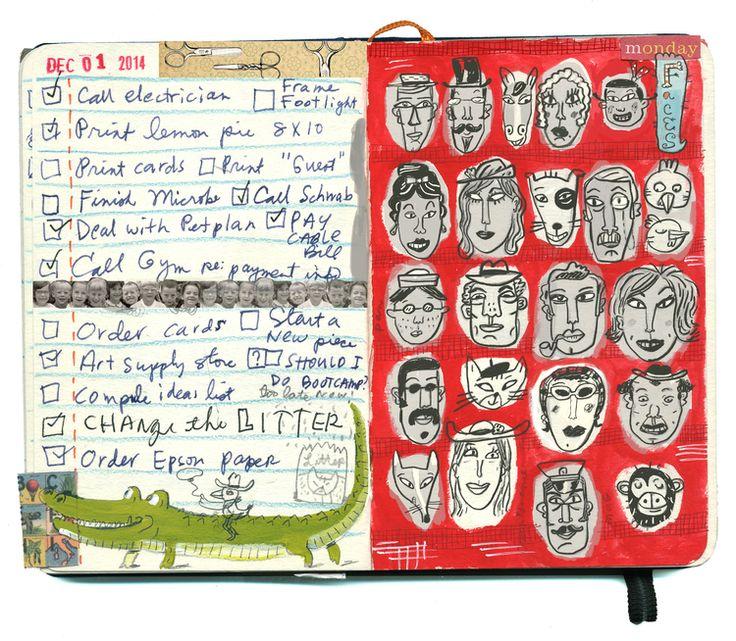 DEC 01 2014
Call electrician
Frame
Footlight
Print lemon pie 8X10
Print cards
Print "Guest"
Finish Microbe
Call Schwab
Deal with Petplan
PAY
CABLE
Bill
Call Gym re: payment info
Order cards
Start a
New piece
Art supply store
?
SHOULD I
DO BOOTCAMP?
too late now!
Compile ideas list
CHANGE the LITTER
Order Epson paper
Litter
monday
Faces